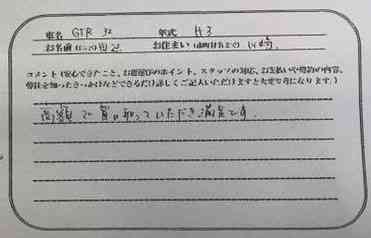 車名 GTR 32 年式 H3
お名前 お住まい
コメント(安心できたこと、お店選びのポイント、スタッフの対応、お支払いや契約の内容、
弊社を知ったきっかけなどできるだけ詳しくご記入いただけますと大変気になります。)
高額で買い取っていただき満足です。